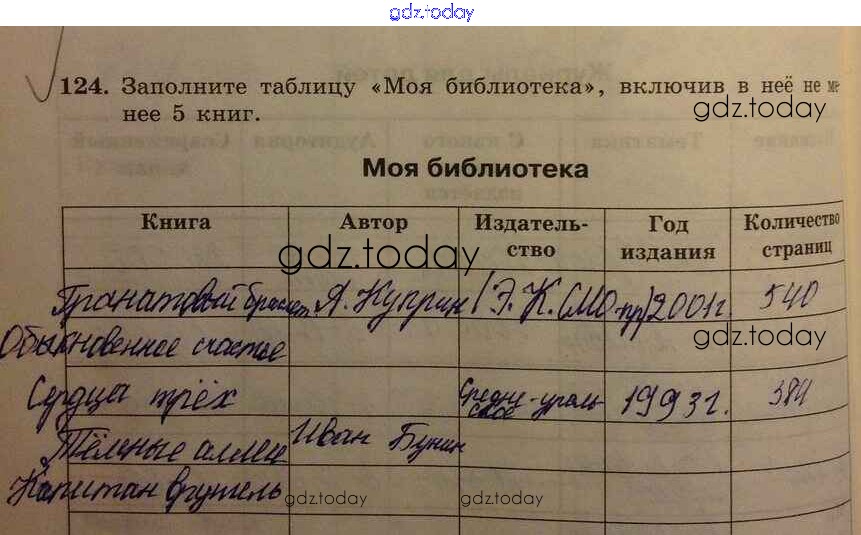 gdz.today
124. Заполните таблицу «Моя библиотека», включив в неё не ме-
нее 5 книг.
gdz.today
Моя библиотека
Книга Автор Издатель-ство Год издания Количество страниц
gdz.today
Гранатовый браслет А. Куприн 2001г. 540
Обыкновенное счастье
gdz.today
Сердца трёх Средне-ураль ское 1993г. 384
Тёмные аллеи Иван Бунин
Капитан врунгель
gdz.today gdz.today